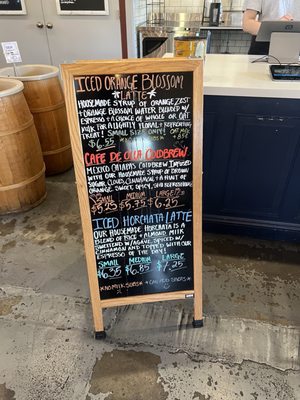 ICED ORANGE BLOSSOM
*LATTE*
HOUSEMADE SYRUP OF ORANGE ZEST
+ ORANGE BLOSSOM WATER BLENDED W/
ESPRESSO + A CHOICE OF WHOLE OR OAT
MILK FOR A LIGHTLY FLORAL + REFRESHING
TREAT! SMALL SIZE ONLY! OAT MILK
$6.55
CAFE DE OLLA COLDBREW
MEXICO CHIAPAS COLDBREW INFUSED
IN HOUSE WITH SYRUP OR BROWN
SUGAR, CLOVES, CINNAMON + A HINT OF
ORANGE. SWEET, SPICY, AND REFRESHING
SMALL MEDIUM LARGE
$5.25 $5.75 $6.25
ICED HORCHATA LATTE
OUR HOUSEMADE HORCHATA IS A
BLEND OF RICE + ALMOND MILK
SWEETENED W/ AGAVE, SPICED W/
CINNAMON AND TOPPED WITH OUR
ESPRESSO OF THE DAY!
SMALL MEDIUM LARGE
$6.35 $6.85 $7.25